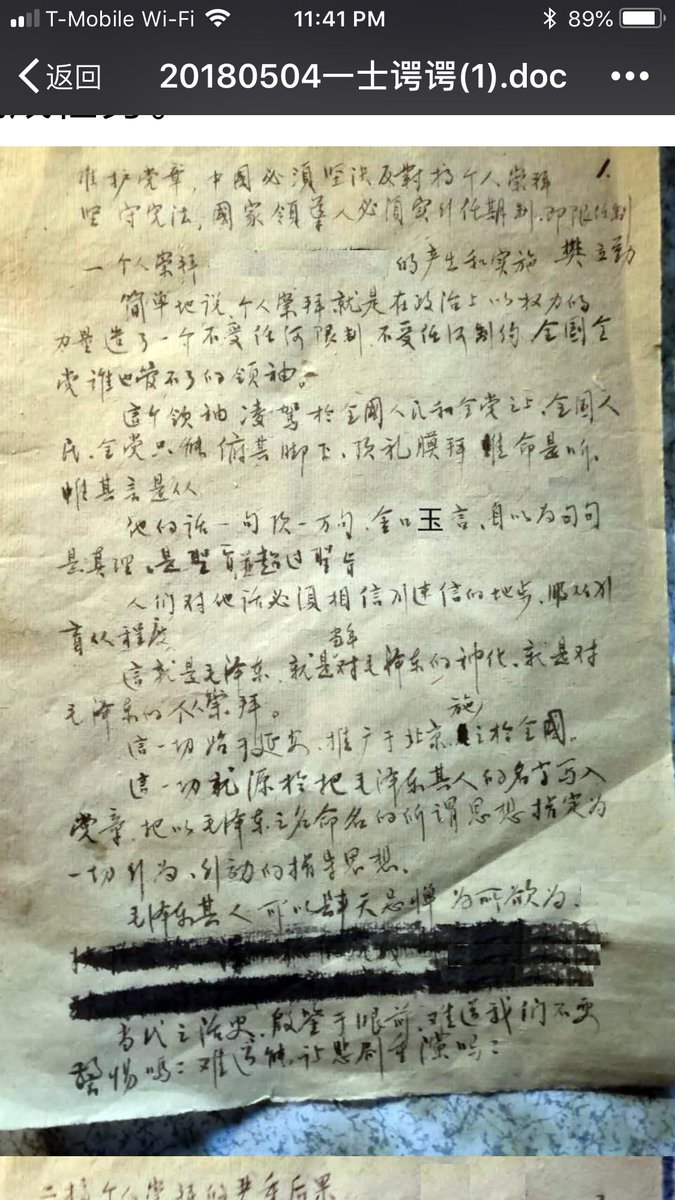 T-Mobile Wi-Fi 11:41 PM 89%
返回 20180504一士谔谔(1).doc
维护党章，中國必須坚决反對搞个人崇拜 1.
坚守宪法，國家领導人必須实行任期制、即限任制
一 个人崇拜 的产生和实施 樊立勤
简单地说，个人崇拜就是在政治上以权力的
力量造了一个不受任何限制、不受任何制约、全国全
党谁也管不了的领袖。
這个领袖凌駕於全國人民和全党之上、全国人
民、全党只能俯其脚下、顶礼膜拜 惟命是听、
惟其言是从
他的话一句顶一万句，金口玉言，自以为句句
是真理、是圣旨超过圣旨
人们对他话必须相信到迷信的地步，服从到
盲从程度 当年
這就是毛泽东、就是对毛泽东的神化、就是对
毛泽东的个人崇拜。
這一切始于延安、推广于北京、施之於全國。
這一切就源於把毛泽东其人的名字写入
党章，把以毛泽东之名命名的所謂思想指定为
一切行为、行动的指导思想。
毛泽东其人可以肆无忌惮 为所欲为、
当代之治史、殷鉴于眼前，难道我们不要
警惕嗎？难道能让悲剧重演吗？
二 搞个人崇拜的严重后果